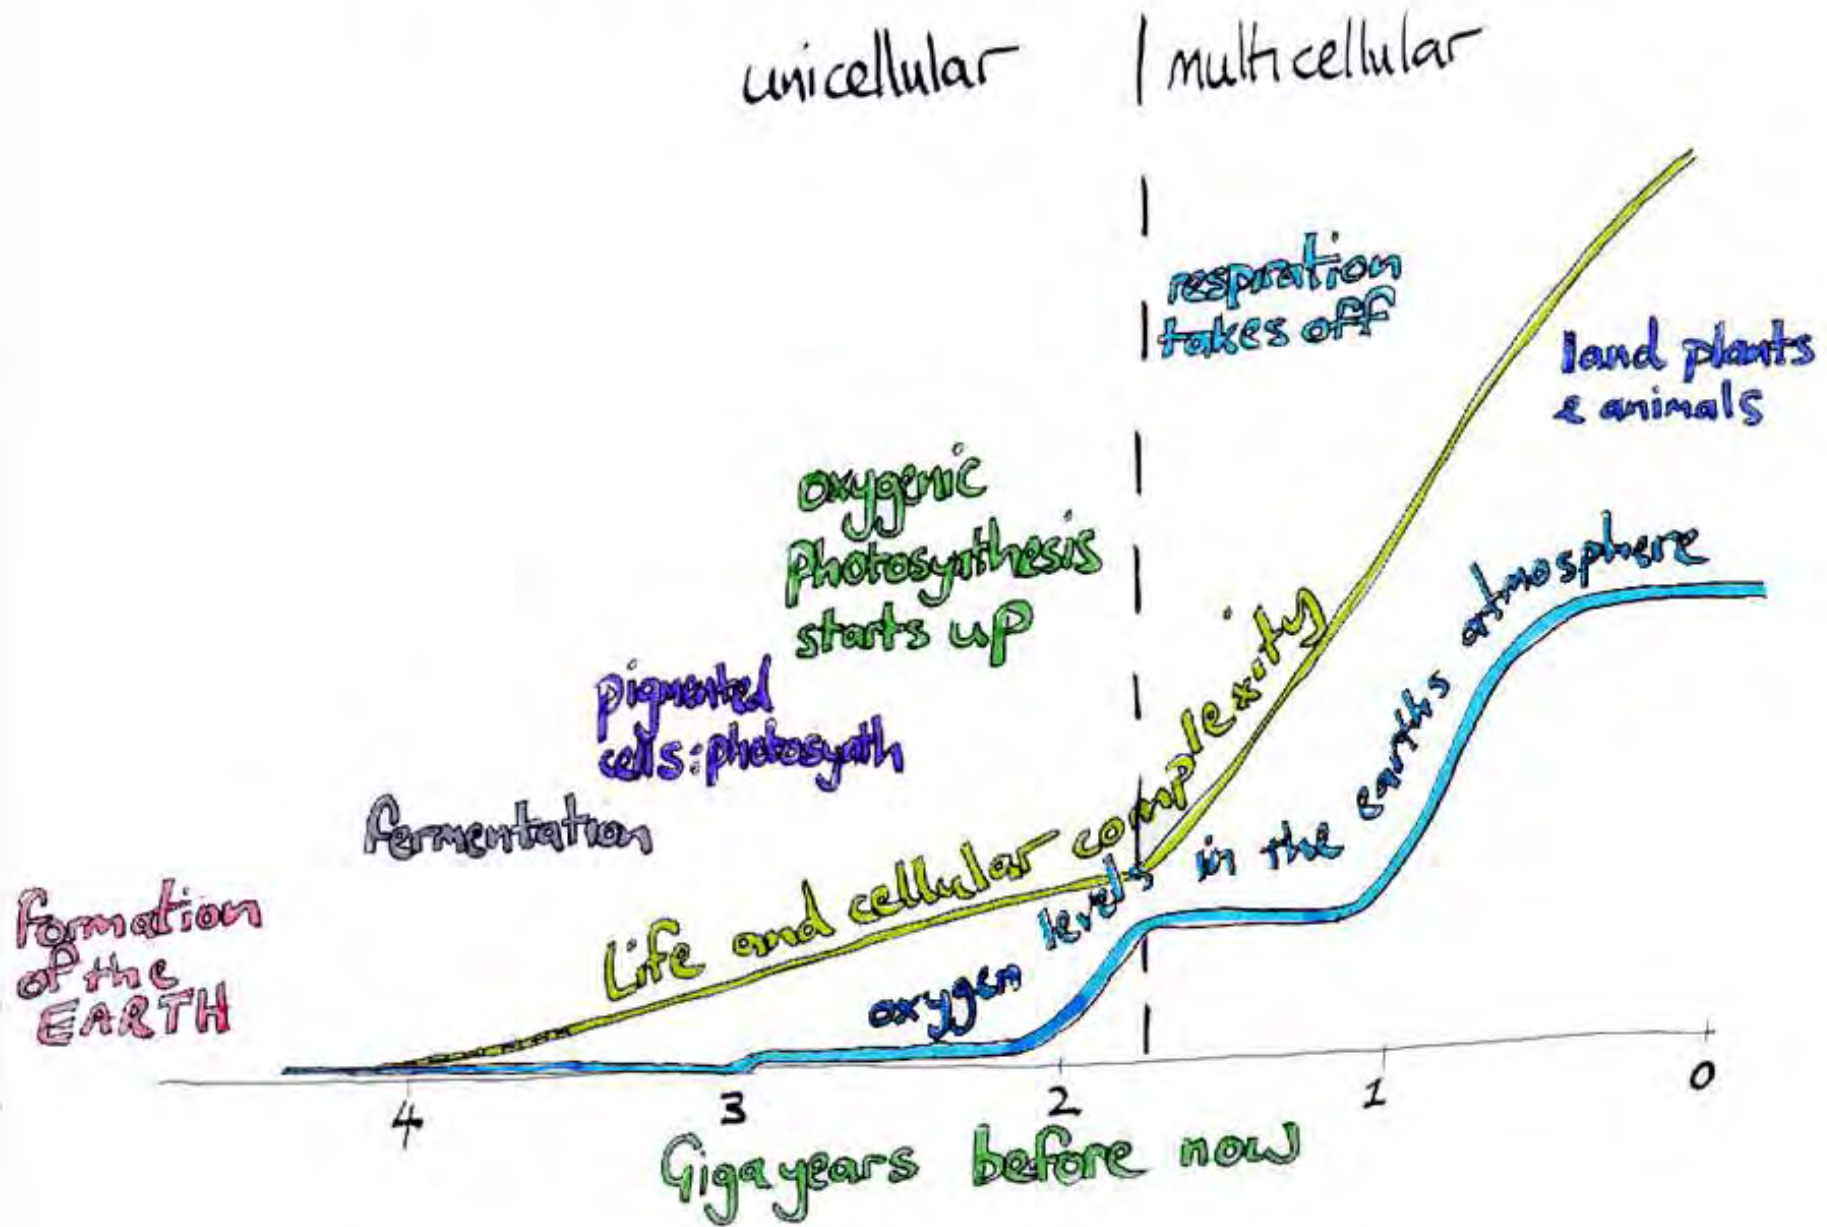 unicellular | multicellular
respiration
takes off
land plants
& animals
oxygenic
photosynthesis
starts up
pigmented
cells: photosynth
fermentation
formation
of the
EARTH
Life and cellular complexity
oxygen levels in the earths atmosphere
4 3 2 1 0
Gigayears before now